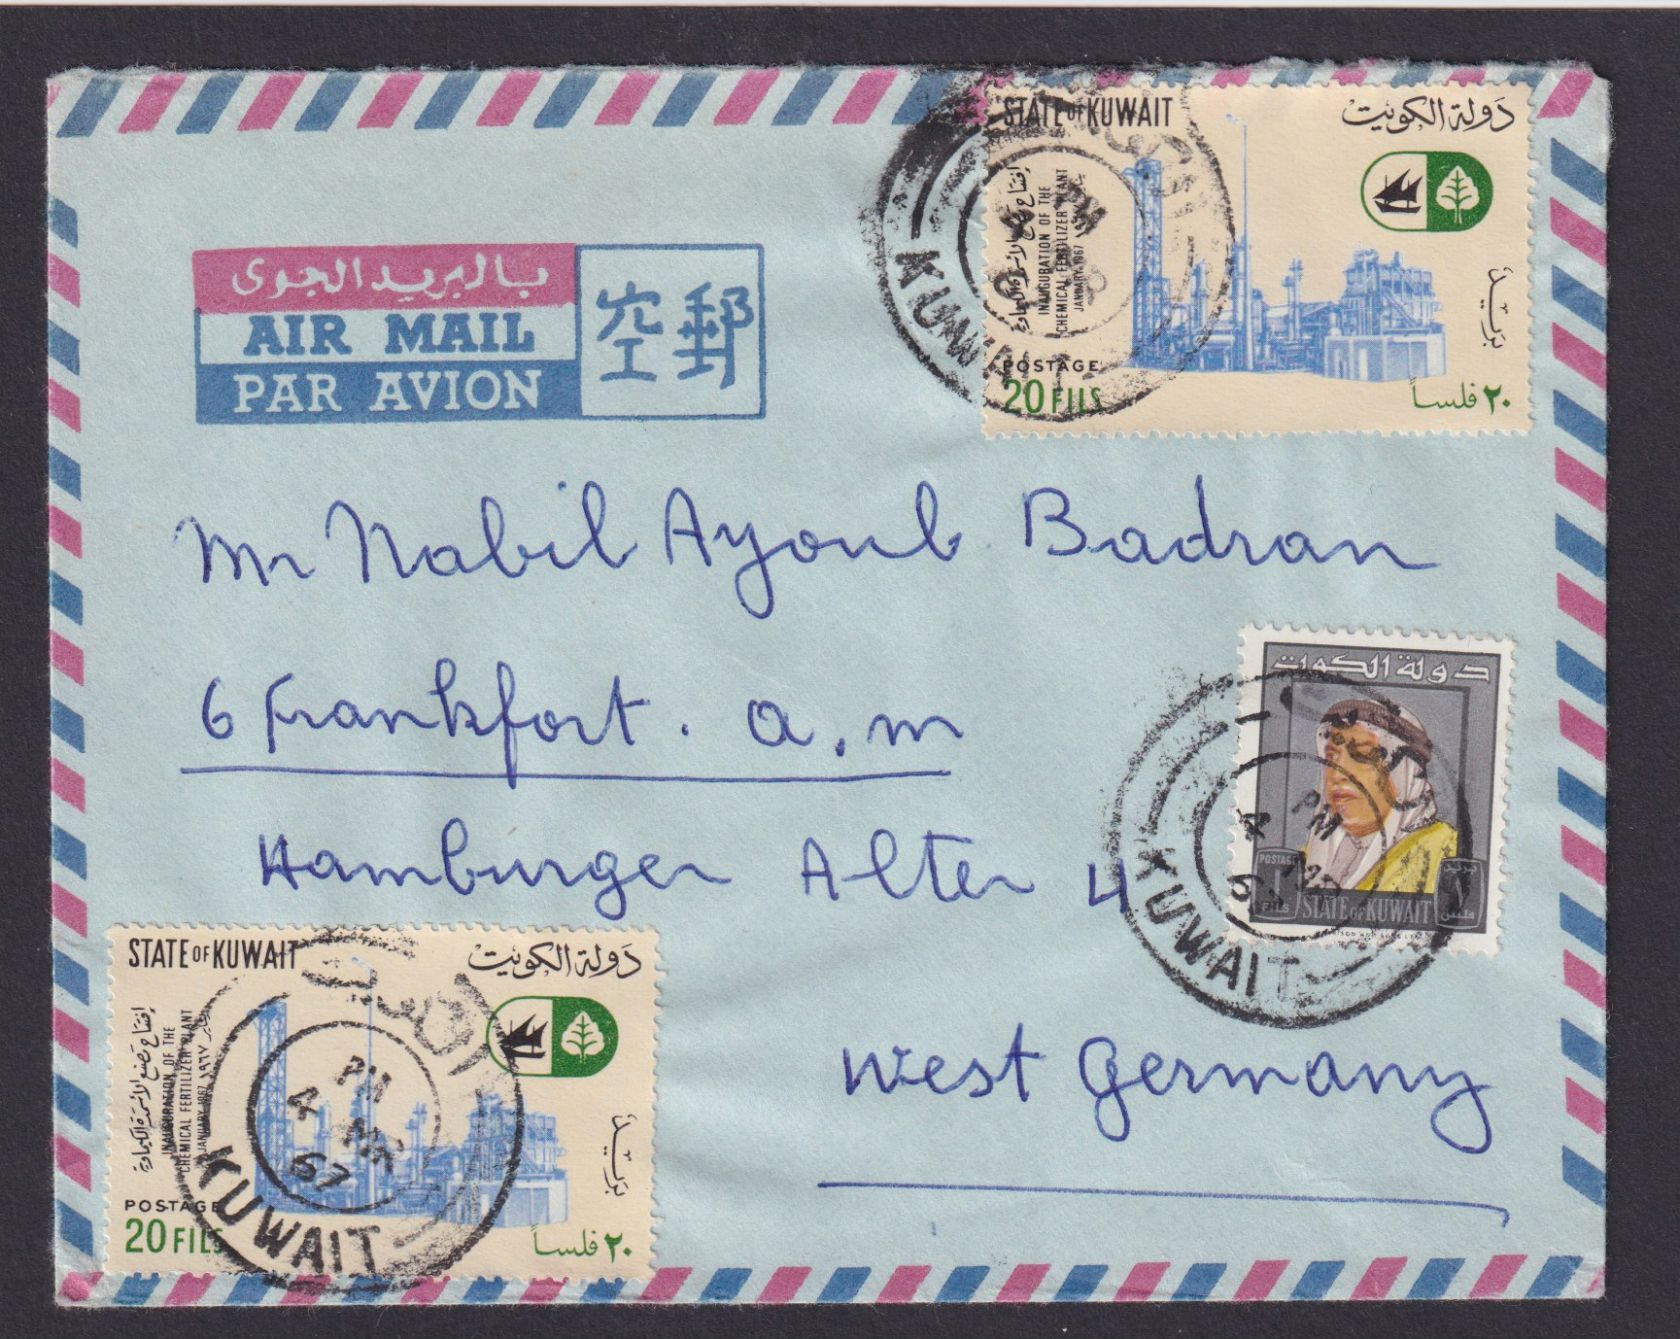 STATE OF KUWAIT دولة الكويت
إفتتاح مصنع الأسمدة الكيماوية
INAUGURATION OF THE
CHEMICAL FERTILIZER PLANT
JANUARY 1967
بريد
POSTAGE
20 FILS ٢٠ فلساً
KUWAIT
PM
بالبريد الجوى
AIR MAIL
PAR AVION
空郵
Mr Nabil Ayoub Badran
6 Frankfort. a.m
Hamburger Alter 4
West Germany
دولة الكويت
POSTAGE
FILS
بريد
STATE OF KUWAIT
PM
4
67
KUWAIT
STATE OF KUWAIT دولة الكويت
إفتتاح مصنع الأسمدة الكيماوية
INAUGURATION OF THE
CHEMICAL FERTILIZER PLANT
JANUARY 1967 يناير ١٩٦٧
بريد
POSTAGE
20 FILS ٢٠ فلساً
الكويت
PM
4
67
KUWAIT